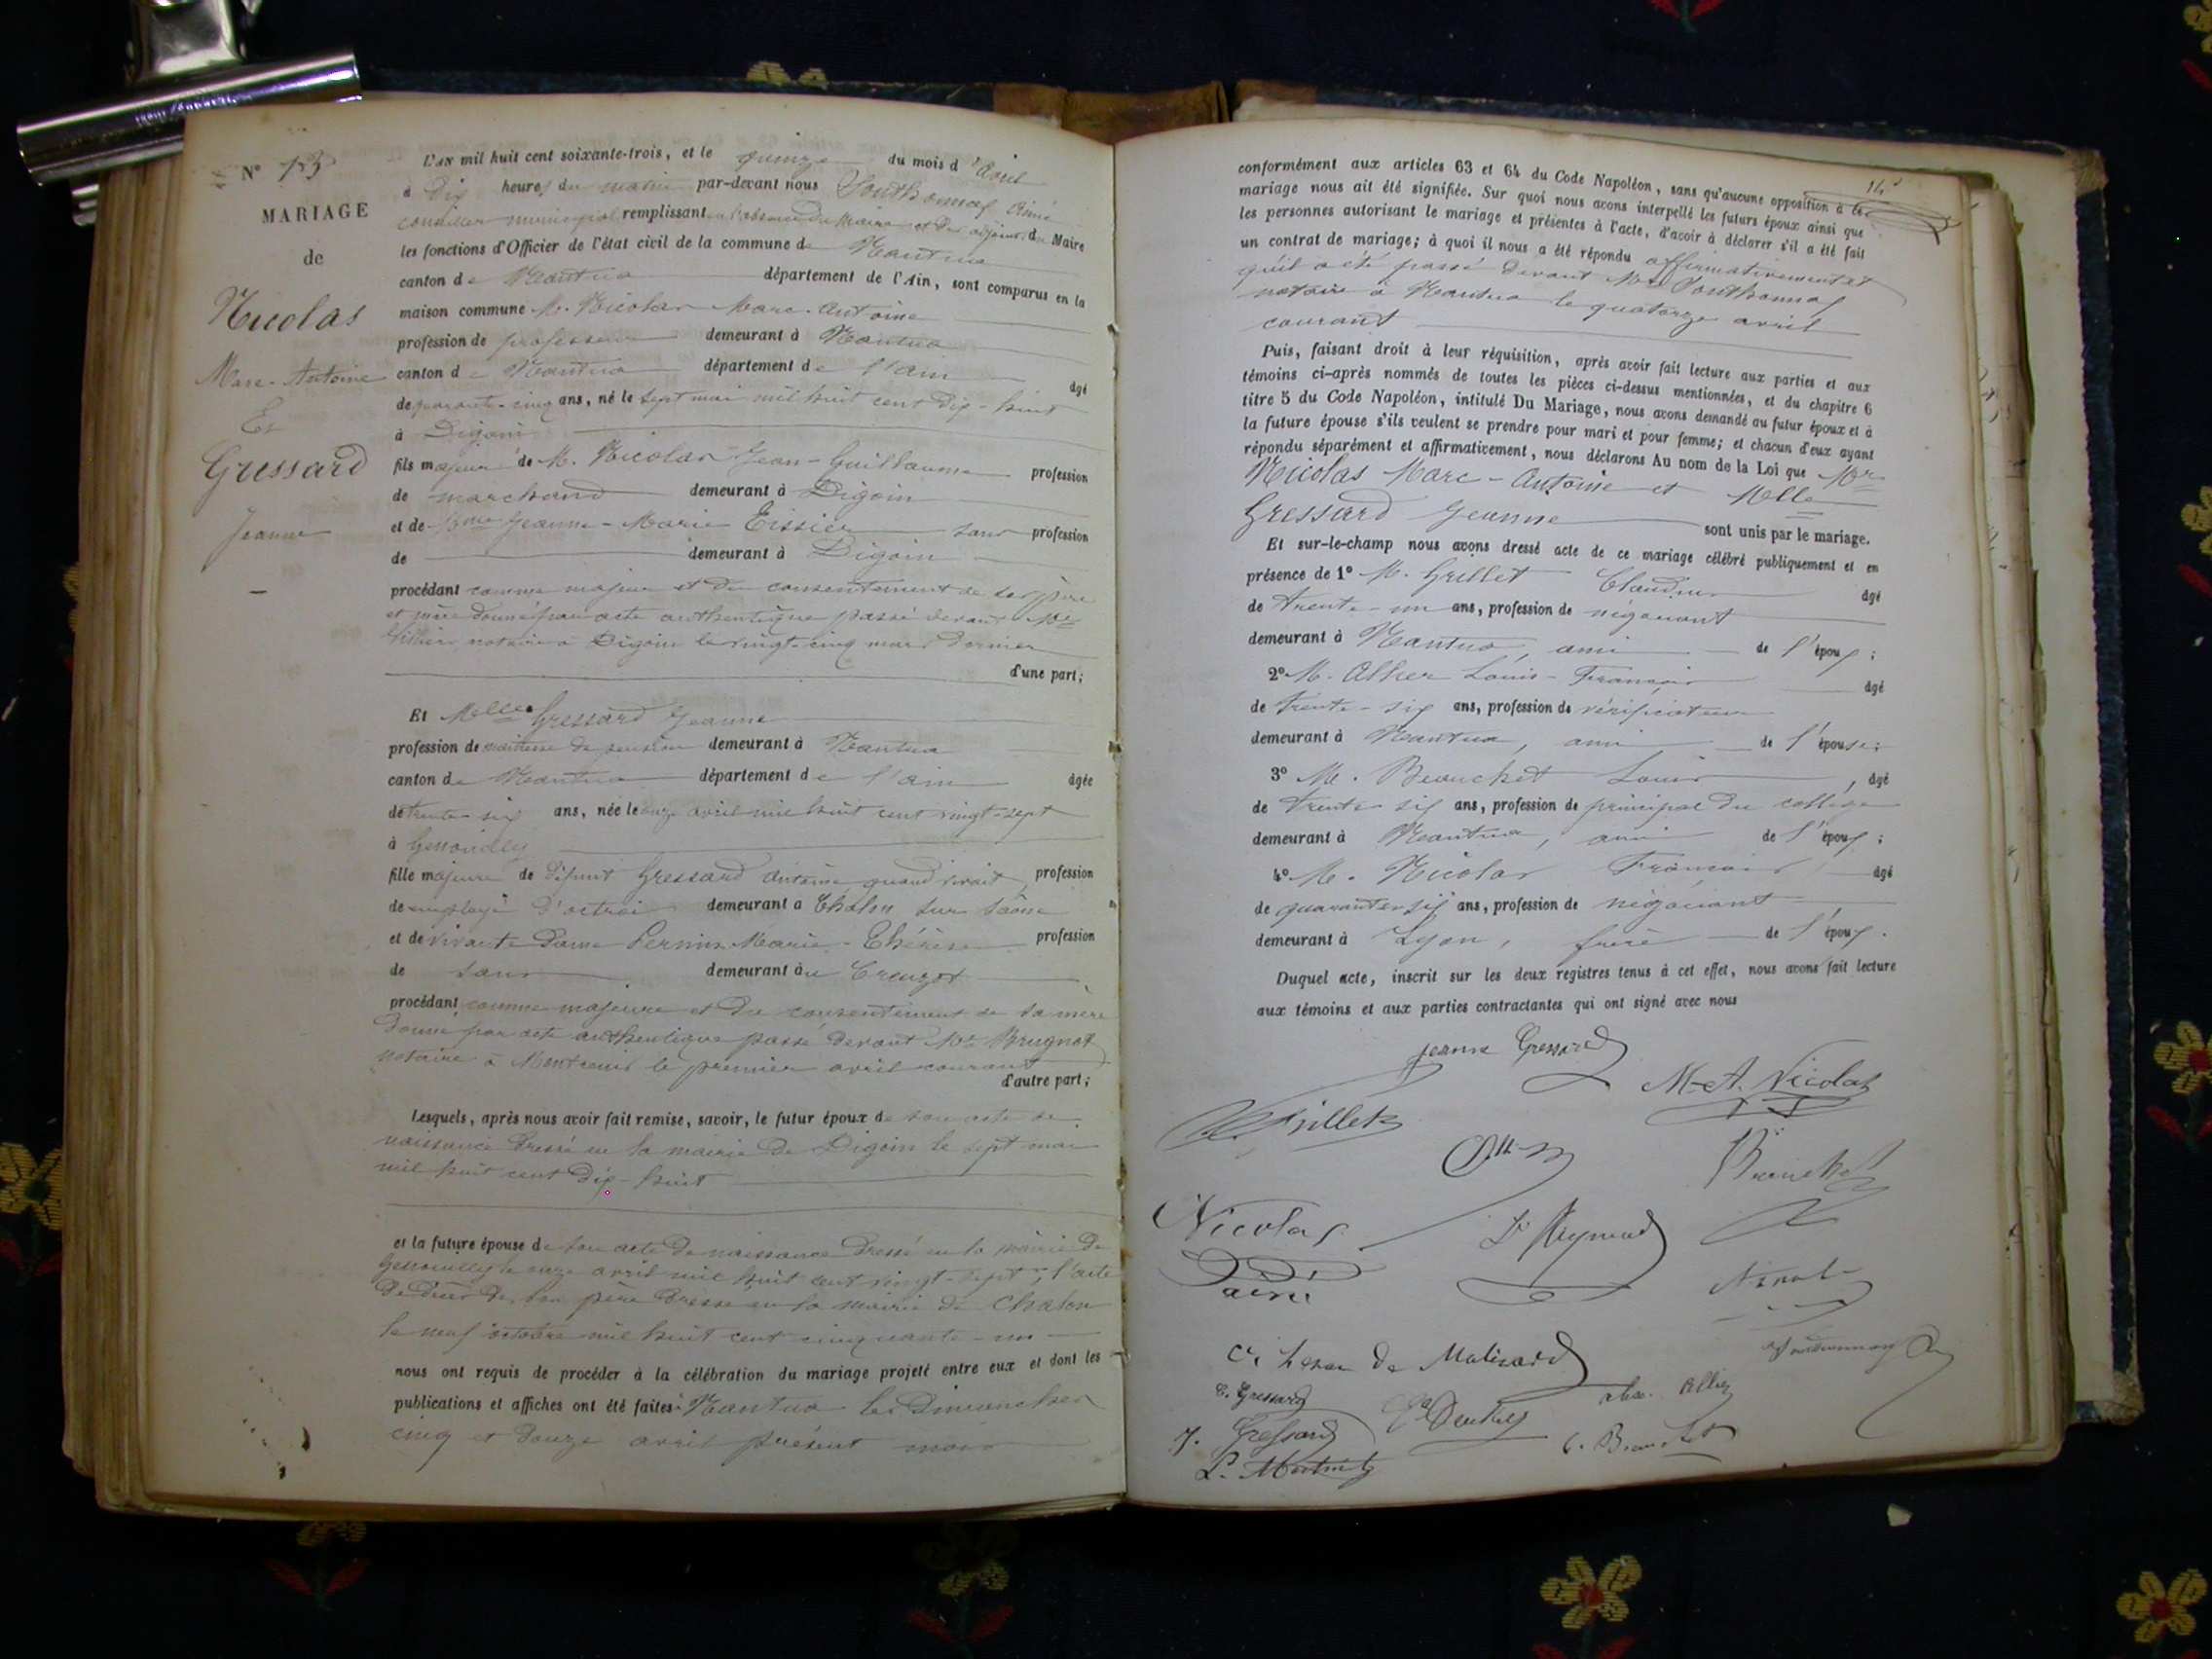 N° 13
MARIAGE
de
Nicolas
Marc-Antoine
Et
Gressard
Jeanne
L'AN mil huit cent soixante-trois, et le quinze du mois d'avril
à dix heures du matin par-devant nous Ponthonnas Aimé
conseiller municipal remplissant en l'absence du Maire et des adjoints du Maire
les fonctions d'Officier de l'état civil de la commune de Nantua
canton de Nantua département de l'Ain, sont comparus en la
maison commune M. Nicolas Marc-Antoine
profession de professeur demeurant à Nantua
canton de Nantua département de l'ain âgé
de quarante-cinq ans, né le sept mai mil huit cent dix-huit
à Digoin
fils majeur de M. Nicolas Jean-Guillaume profession
de marchand demeurant à Digoin
et de Mme Jeanne-Marie Tissier sans profession
de demeurant à Digoin
procédant comme majeur et du consentement de ses père
et mère donné par acte authentique passé devant Me
notaire à Digoin le vingt-cinq mars dernier
d'une part;
Et Melle Gressard Jeanne
profession de maitresse de pension demeurant à Nantua
canton de Nantua département de l'ain âgée
de trente-six ans, née le onze avril mil huit cent vingt-sept
à Genouilly
fille majeure de défunt Gressard Antoine quand vivait profession
de employé d'octroi demeurant à Châlon sur Saône
et de vivante Dame Pernin Marie-Thérèse profession
de sans demeurant au Creuzot
procédant comme majeure et du consentement de sa mère
donné par acte authentique passé devant Me Brugnot
notaire à Montcenis le premier avril courant
d'autre part;
Lesquels, après nous avoir fait remise, savoir, le futur époux de son acte de
naissance dressé en la mairie de Digoin le sept mai
mil huit cent dix-huit
et la future épouse de son acte de naissance dressé en la mairie de
Genouilly le onze avril mil huit cent vingt-sept; l'acte
de décès de son père dressé en la mairie de Chalon
le neuf octobre mil huit cent cinquante-un
nous ont requis de procéder à la célébration du mariage projeté entre eux et dont les
publications et affiches ont été faites à Nantua les Dimanches
cinq et douze avril présent mois
conformément aux articles 63 et 64 du Code Napoléon, sans qu'aucune opposition à ce
mariage nous ait été signifiée. Sur quoi nous avons interpellé les futurs époux ainsi que
les personnes autorisant le mariage et présentes à l'acte, d'avoir à déclarer s'il a été fait
un contrat de mariage; à quoi il nous a été répondu affirmativement et
qu'il a été passé devant Me Ponthonnas
notaire à Nantua le quatorze avril
courant
Puis, faisant droit à leur réquisition, après avoir fait lecture aux parties et aux
témoins ci-après nommés de toutes les pièces ci-dessus mentionnées, et du chapitre 6
titre 5 du Code Napoléon, intitulé Du Mariage, nous avons demandé au futur époux et à
la future épouse s'ils veulent se prendre pour mari et pour femme; et chacun d'eux ayant
répondu séparément et affirmativement, nous déclarons Au nom de la Loi que Mr
Nicolas Marc-Antoine et Melle
Gressard Jeanne sont unis par le mariage.
Et sur-le-champ nous avons dressé acte de ce mariage célébré publiquement et en
présence de 1° M. Grillet Claudius âgé
de trente-un ans, profession de négociant
demeurant à Nantua, ami de l'époux;
2° M. Louis-François âgé
de trente-six ans, profession de vérificateur
demeurant à Nantua, ami de l'épouse;
3° M. Beauchet Louis, âgé
de trente-six ans, profession de principal du collège
demeurant à Nantua, ami de l'époux;
4° M. Nicolas François âgé
de quarante-six ans, profession de négociant
demeurant à Lyon, frère de l'époux.
Duquel acte, inscrit sur les deux registres tenus à cet effet, nous avons fait lecture
aux témoins et aux parties contractantes qui ont signé avec nous
Jeanne Gressard
M-A. Nicolas
Grillet
Beauchet
Nicolas
ainé
Nicolas
de Malivard
Ponthonnas
C. Gressard
J. Gressard